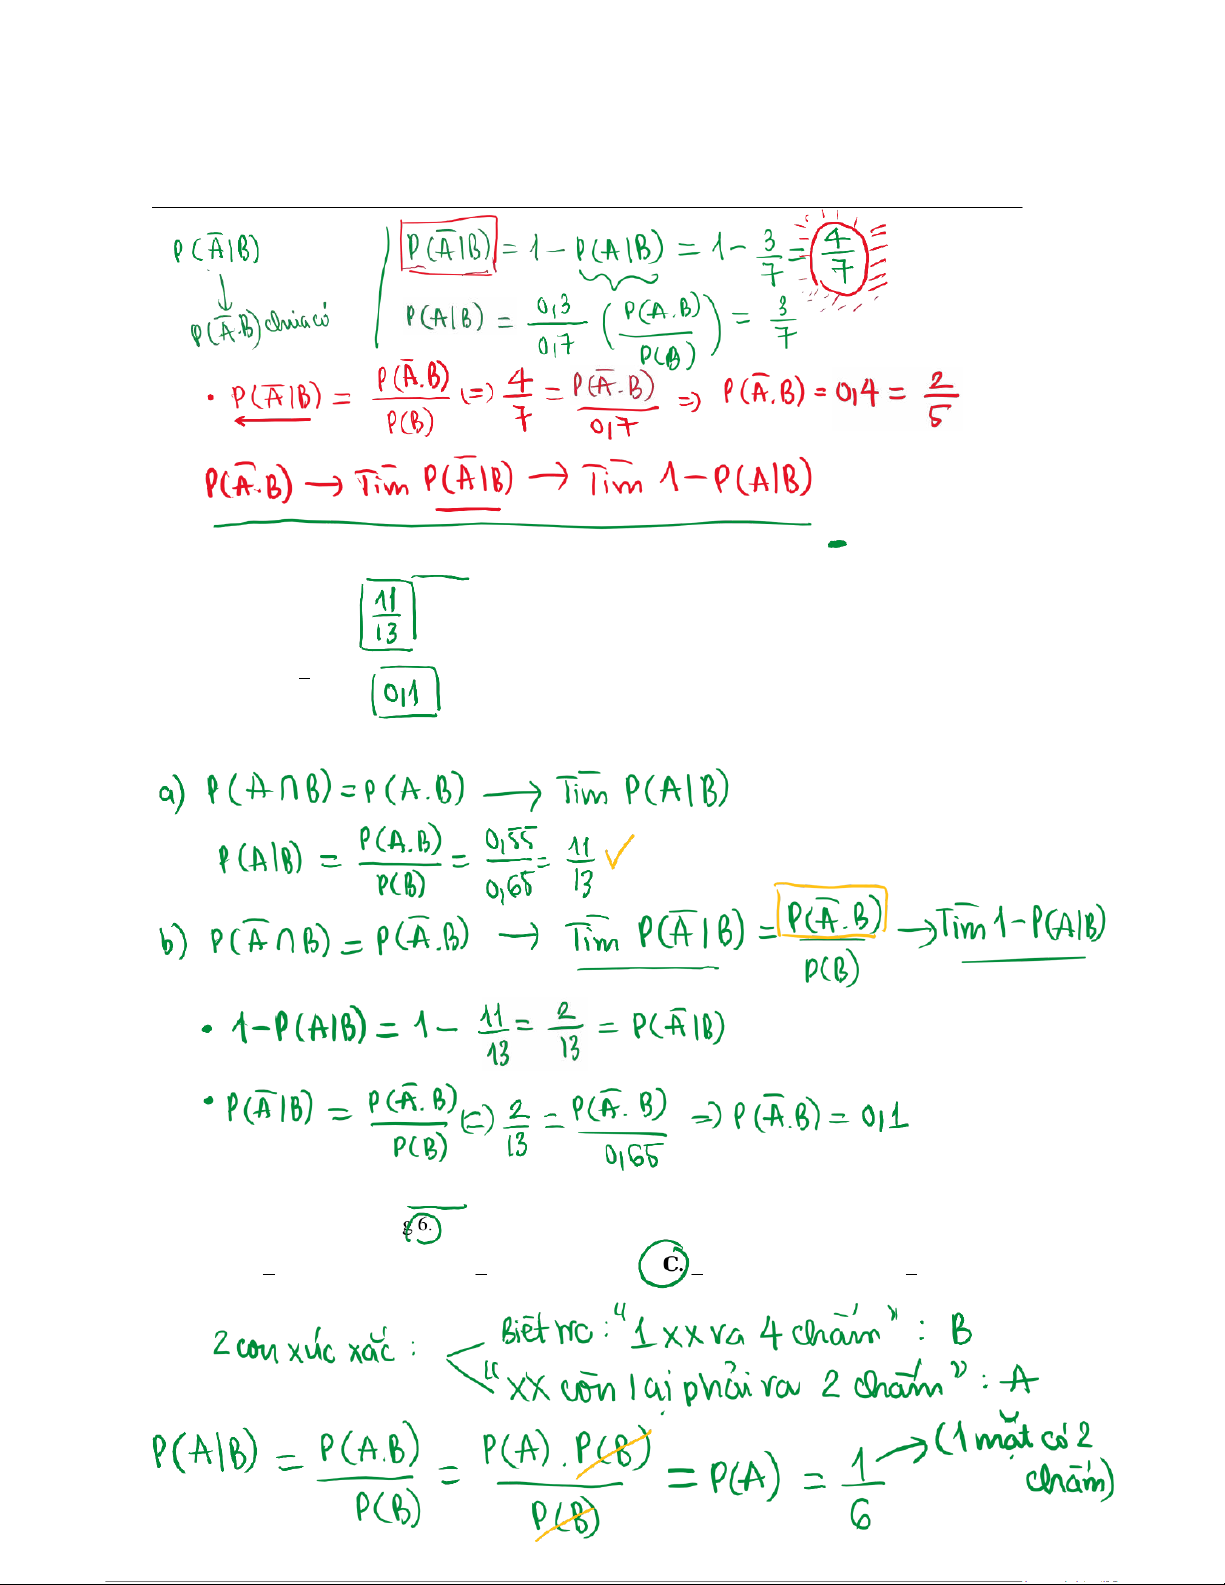 P(A̅|B)
P(A̅.B) chưa có
P(A̅|B) = 1 - P(A|B) = 1 - 3/7 = 4/7
P(A|B) = 0,3/0,7 (P(A.B)/P(B)) = 3/7
• P(A̅|B) = P(A̅.B)/P(B) (=) 4/7 = P(A̅.B)/0,7 => P(A̅.B) = 0,4 = 2/5
P(A̅.B) → Tìm P(A̅|B) → Tìm 1-P(A|B)
11/13
0,1
a) P(A∩B) = P(A.B) → Tìm P(A|B)
P(A|B) = P(A.B)/P(B) = 0,55/0,65 = 11/13 ✓
b) P(A̅∩B) = P(A̅.B) → Tìm P(A̅|B) = P(A̅.B)/P(B) → Tìm 1-P(A|B)
• 1-P(A|B) = 1 - 11/13 = 2/13 = P(A̅|B)
• P(A̅|B) = P(A̅.B)/P(B) (=) 2/13 = P(A̅.B)/0,65 => P(A̅.B) = 0,1
6.
C.
2 con xúc xắc :
Biết rằ : "1 xx ra 4 chấm" : B
"xx còn lại phải ra 2 chấm" : A
P(A|B) = P(A.B)/P(B) = P(A).P(B)/P(B) = P(A) = 1/6 → (1 mặt có 2 chấm)